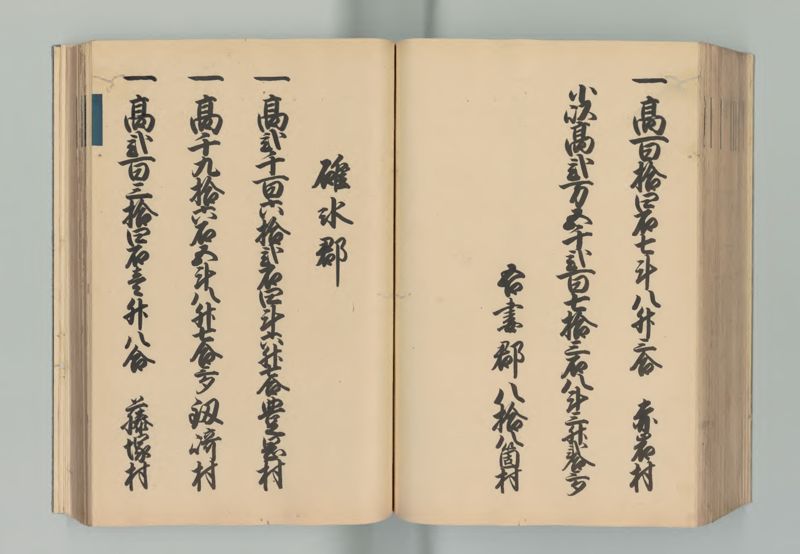 一高百拾四石七斗八升三合 赤岩村
小以高弐万五千弐百七拾三石八斗三升壱合六夕
吾妻郡八拾八箇村
碓氷郡
一高弐千百六拾弐石四斗六升壱合 豊岡村
一高千九拾六石五斗八升七合三夕 劔崎村
一高弐百三拾四石壱升八合 藤塚村